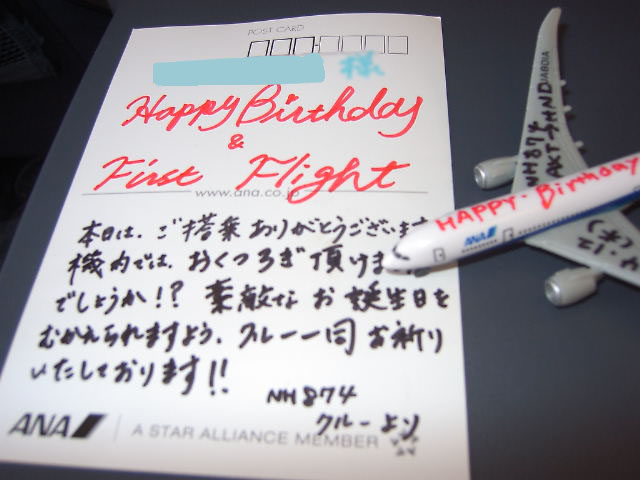 POST CARD
様
Happy Birthday
&
First Flight
www.ana.co.jp
本日は、ご搭乗ありがとうございます
機内では、おくつろぎ頂けま
でしょうか!? 素敵な お誕生日を
むかえられますよう、クルー一同 お祈り
いたしております!!
NH874
クルーより
ANA
A STAR ALLIANCE MEMBER
HAPPY・Birthday
ANA
NH874
AKT→HND
JA801A